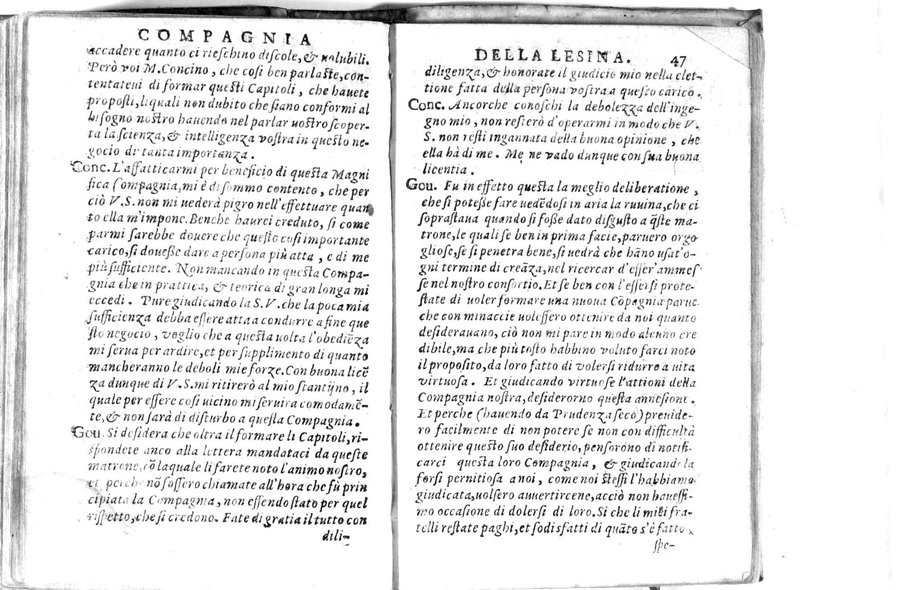 COMPAGNIA
accadere quanto ci rieschino discole, & uolubili.
Però voi M. Concino, che cosi ben parlaste, con-
tentateui di formar questi Capitoli, che hauete
proposti, li quali non dubito che siano conformi al
bisogno nostro hauendo nel parlar uostro scoper-
ta la scienza, & intelligenza vostra in questo ne-
gocio di tanta importanza.
Conc. L'affatticarmi per beneficio di questa Magni
fica Compagnia, mi è di sommo contento, che per
ciò V.S. non mi uederà pigro nell'effettuare quan
to ella m'impone. Benche haurei creduto, si come
parmi sarebbe douere che questo cosi importante
carico, si douesse dare a persona più atta, e di me
più sufficiente. Non mancando in questa Compa-
gnia che in prattica, & teorica di gran longa mi
eccedi. Pure giudicando la S.V. che la poca mia
sufficienza debba essere atta a condurre a fine que
sto negocio, voglio che a questa uolta l'obediẽza
mi serua per ardire, et per supplimento di quanto
mancheranno le deboli mie forze. Con buona licẽ
za dunque di V.S. mi ritirerò al mio stantijno, il
quale per essere cosi uicino mi seruira comodamẽ-
te, & non sarà di disturbo a questa Compagnia.
Gou. Si desidera che oltra il formare li Capitoli, ri-
spondete anco alla lettera mandataci da queste
matrone, cõ la quale li farete noto l'animo nostro,
et perche nõ fossero chiamate all'hora che fù prin
cipiata la Compagnia, non essendo stato per quel
rispetto, che si credono. Fate di gratia il tutto con
dili-
DELLA LESINA. 47
diligenza, & honorate il giudicio mio nella elet-
tione fatta della persona vostra a questo carico.
Conc. Ancorche conoschi la debolezza dell'inge-
gno mio, non resterò d'operarmi in modo che V.
S. non resti ingannata della buona opinione, che
ella hà di me. Me ne vado dunque con sua buona
licentia.
Gou. Fu in effetto questa la meglio deliberatione,
che si potesse fare uedẽdosi in aria la ruuina, che ci
soprastaua quando si fosse dato disgusto a q̃ste ma-
trone, le quali se ben in prima facie, paruero orgo
gliose, se si penetra bene, si uedrà che hãno usat'o-
gni termine di creãza, nel ricercar d'esser'ammes-
se nel nostro consortio. Et se ben con l'essersi prote-
state di uoler formare una nuoua Cõpagnia parue
che con minaccie uolessero ottenere da noi quanto
desiderauano, ciò non mi pare in modo alcuno cre
dibile, ma che più tosto habbino voluto farci noto
il proposito, da loro fatto di volersi ridurre a uita
virtuosa. Et giudicando virtuose l'attioni della
Compagnia nostra, desiderorno questa annesione.
Et perche (hauendo da Prudenza seco) preuide-
ro facilmente di non potere se non con difficultà
ottenere questo suo desiderio, pensorono di notifi-
carci questa loro Compagnia, & giudicandola
forsi pernitiosa a noi, come noi stessi l'habbiamo
giudicata, uolsero auuertircene, acciò non hauessi-
mo occasione di dolersi di loro. Si che li miei fra-
telli restate paghi, et sodisfatti di quãto s'è fatto,
spe-